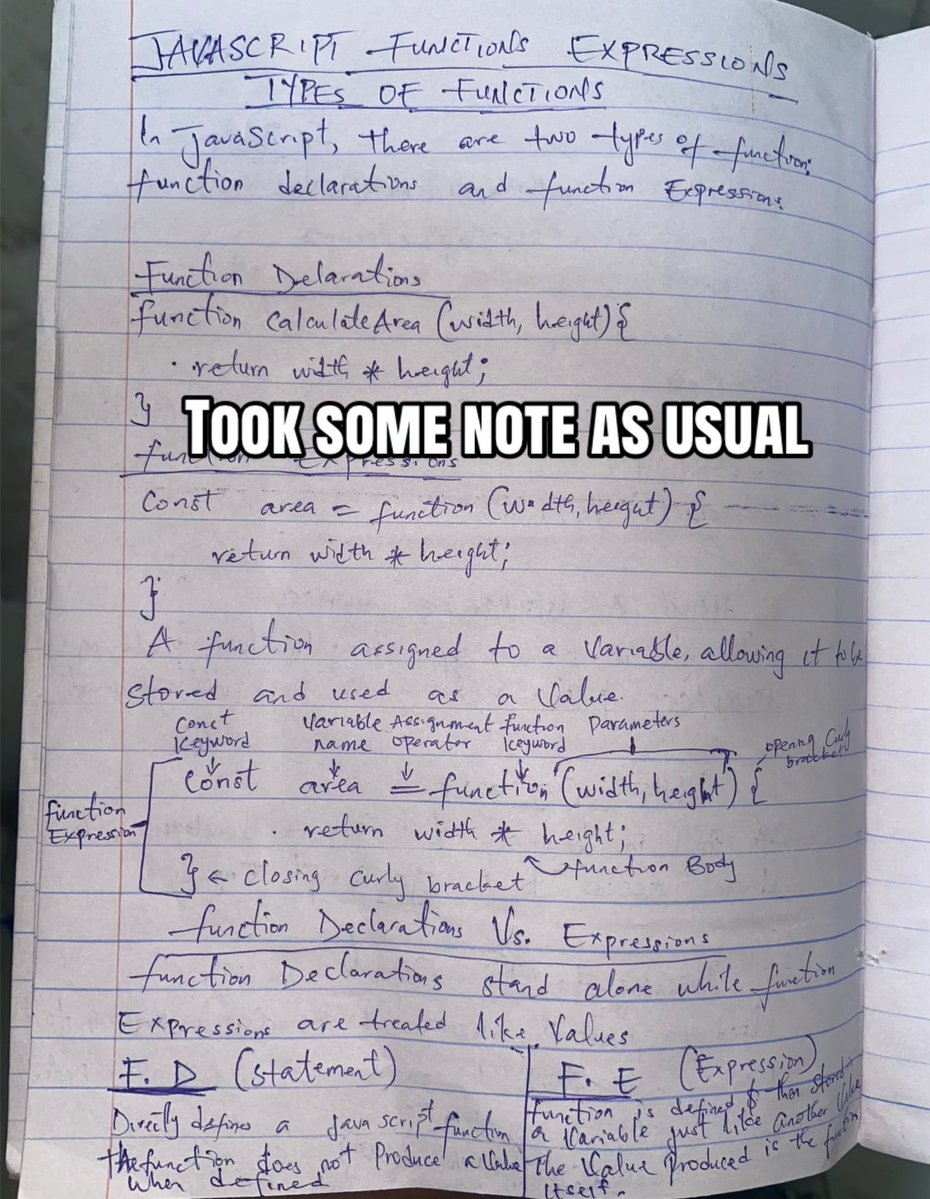 JAVASCRIPT FUNCTIONS EXPRESSIONS
TYPES OF FUNCTIONS
In JavaScript, there are two types of function:
function declarations and function Expressions.
Function Delarations
function calculateArea (width, height) {
return width * height;
}
TOOK SOME NOTE AS USUAL
function Expressions
Const area = function (width, height) {
return width * height;
}
A function assigned to a Variable, allowing it to be
stored and used as a Value.
Const keyword
Variable name
Assignment operator
function keyword
Parameters
opening Curly bracket
Const area = function (width, height) {
return width * height;
function Expression
function Body
} ← closing curly bracket
function Declarations Vs. Expressions
function Declarations stand alone while function
Expressions are treated like Values
F. D (statement)
Directly defines a java script function
the function does not Produce a Value
when defined
F. E (Expression)
function is defined & then stored
a Variable just like another Value
The Value produced is the function
itself.